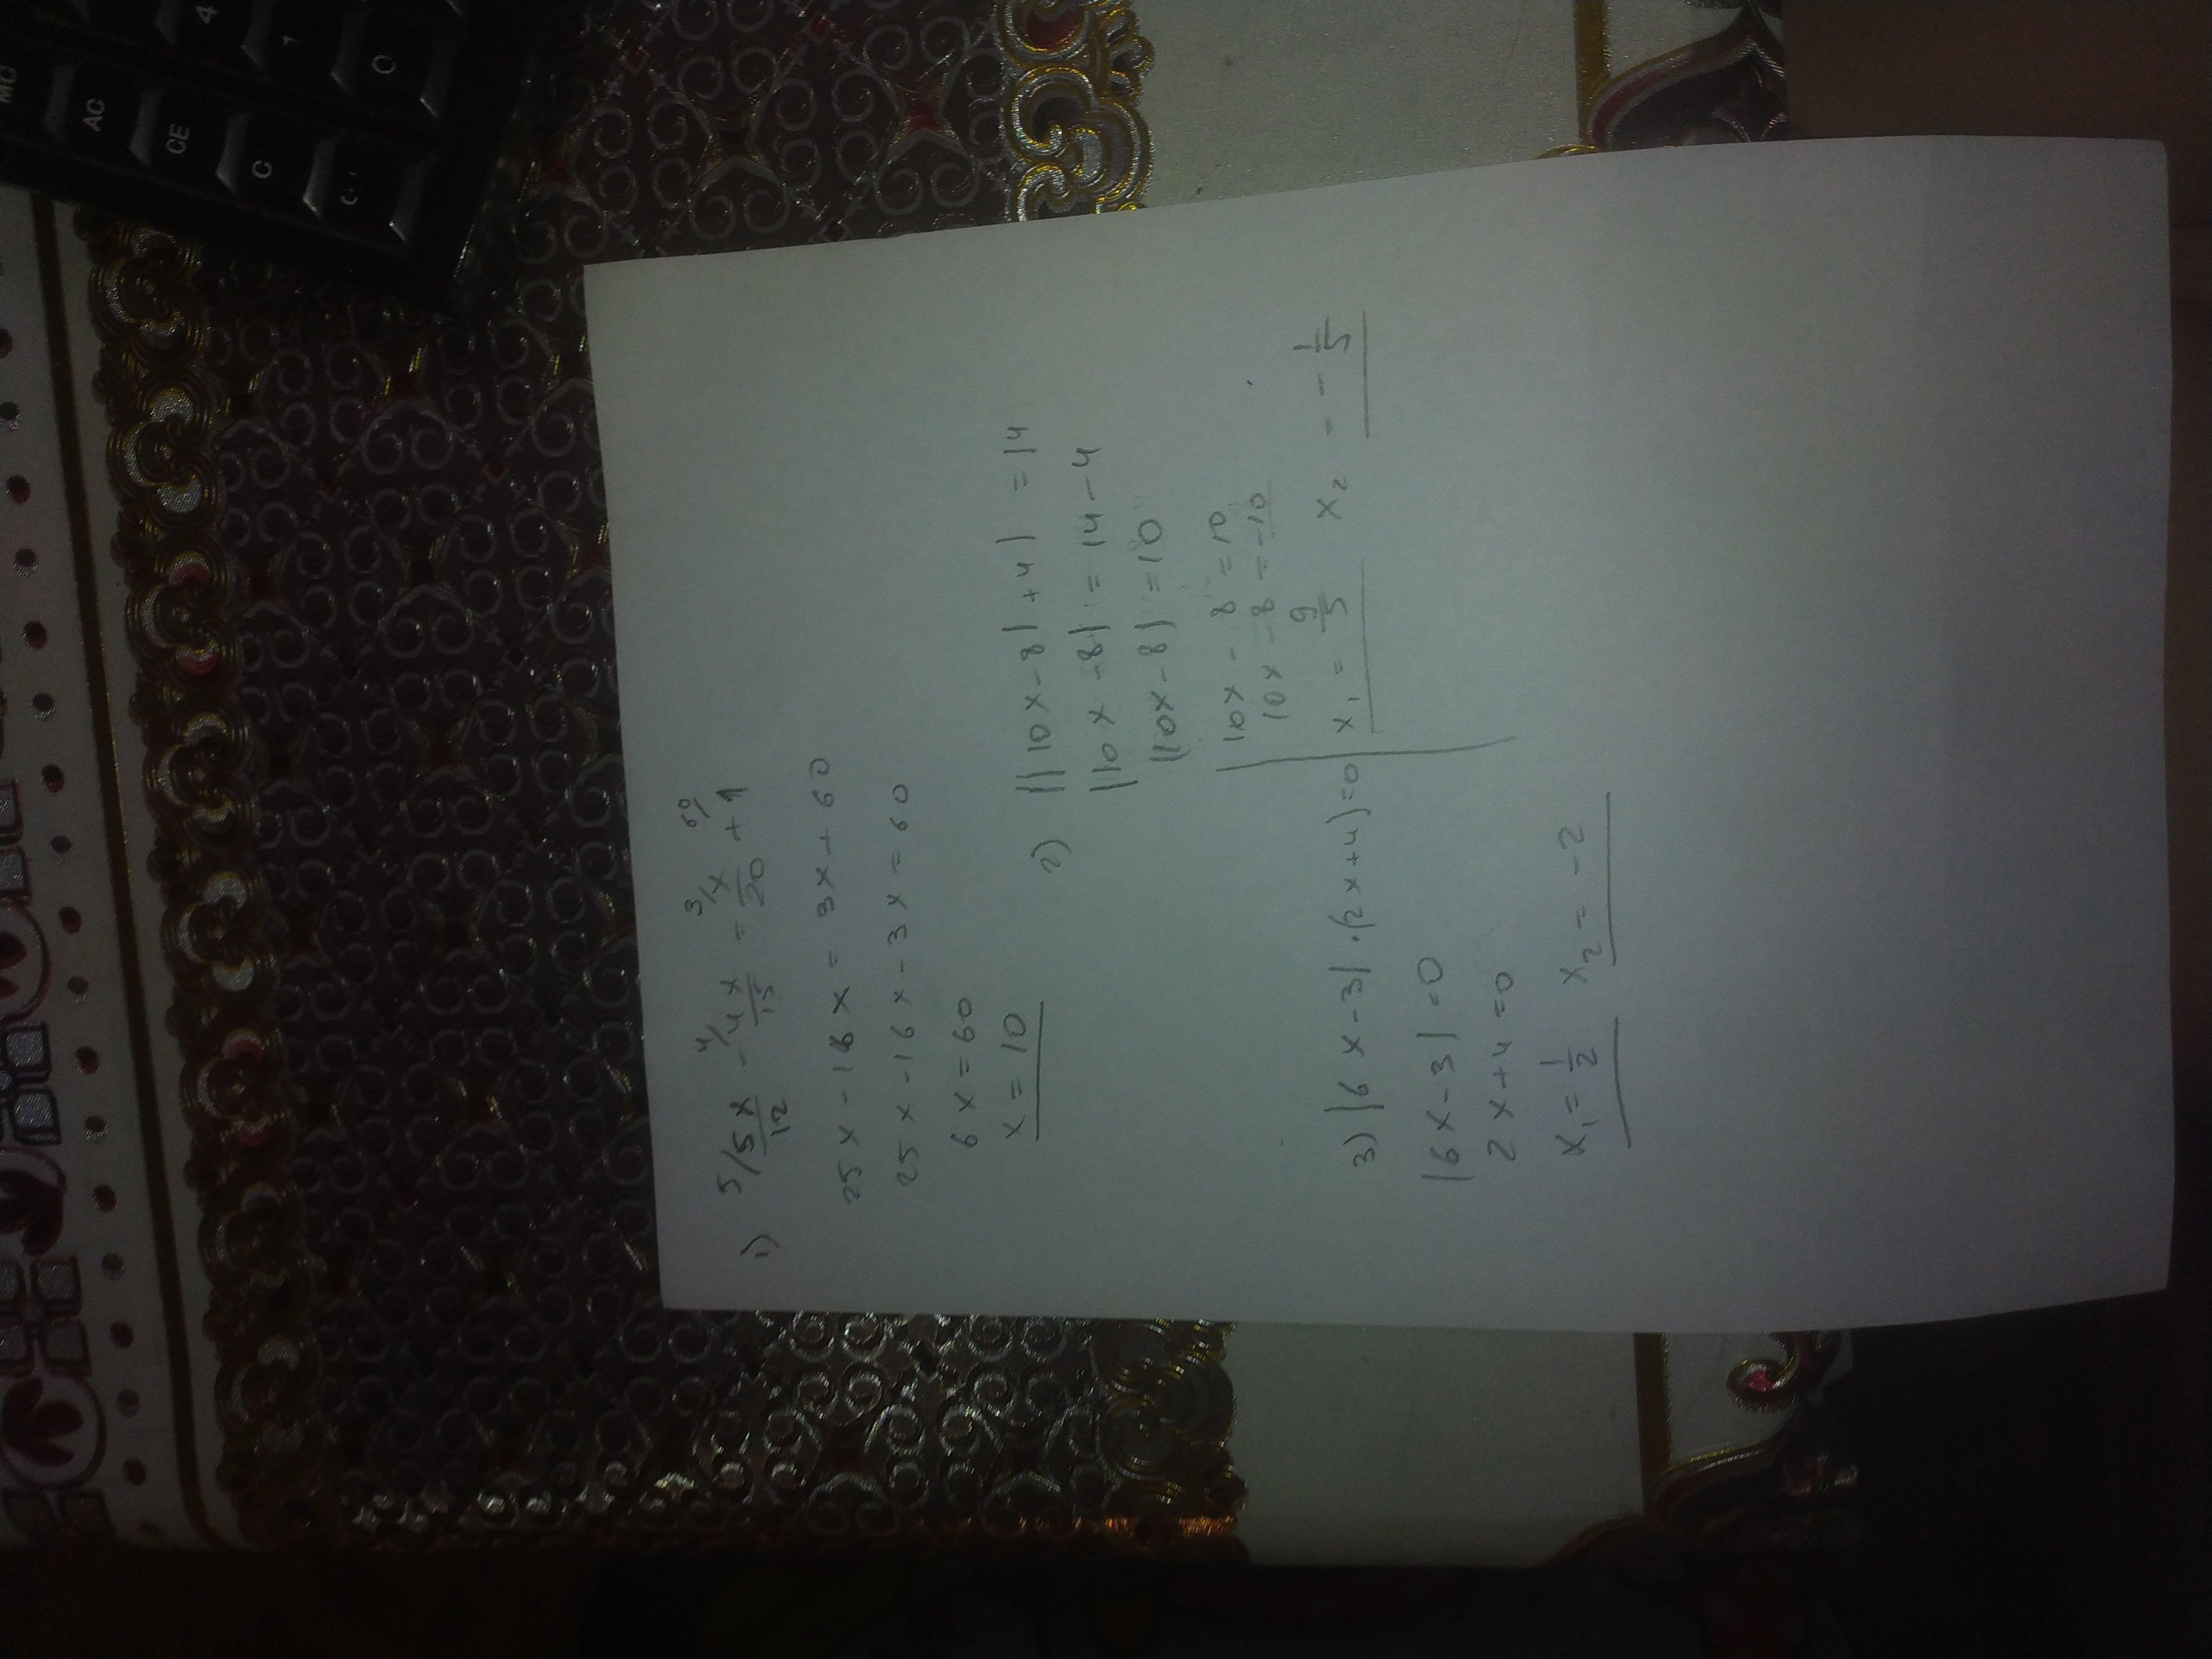 1) 5/ 5x/12 - 4/ 4x/15 = 3/ x/20 + 60/ 1
25x - 16x = 3x + 60
25x - 16x - 3x = 60
6x = 60
x = 10
2) ||10x-8|+4| = 14
|10x-8| = 14-4
|10x-8| = 10
10x - 8 = 10
10x - 8 = -10
x1 = 9/5 x2 = - 1/5
3) |6x-3|·(2x+4)=0
|6x-3|=0
2x+4=0
x1 = 1/2 x2 = -2
MC
AC
CE
C
4
1
0